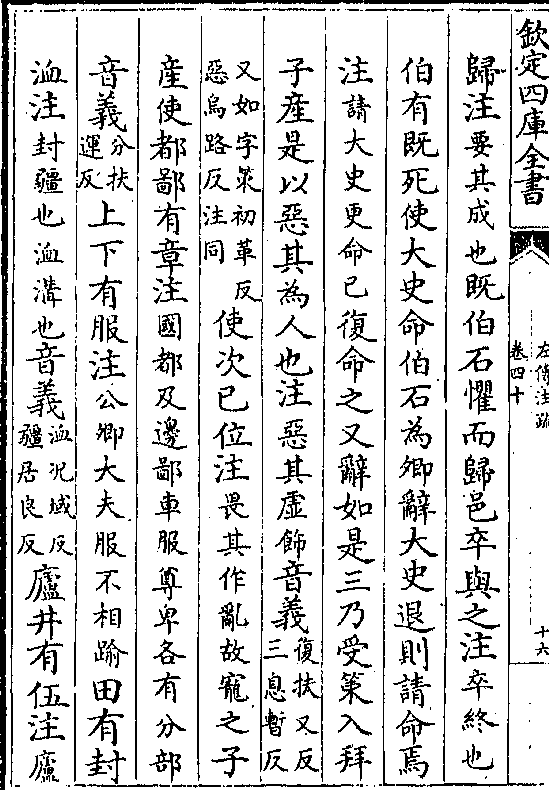 欽定四庫全書
左傳注疏
卷四十
十六
歸注要其成也既伯石懼而歸邑卒與之注卒終也
伯有既死使大史命伯石為卿辭大史退則請命焉
注請大史更命己復命之又辭如是三乃受策入拜
子產是以惡其為人也注惡其虛飾音義復扶又反三息暫反
又如字策初革反惡烏路反注同使次己位注畏其作亂故寵之子
產使都鄙有章注國都及邊鄙車服尊卑各有分部
音義分扶運反上下有服注公卿大夫服不相踰田有封
洫注封疆也洫溝也音義洫況域反疆居良反廬井有伍注廬